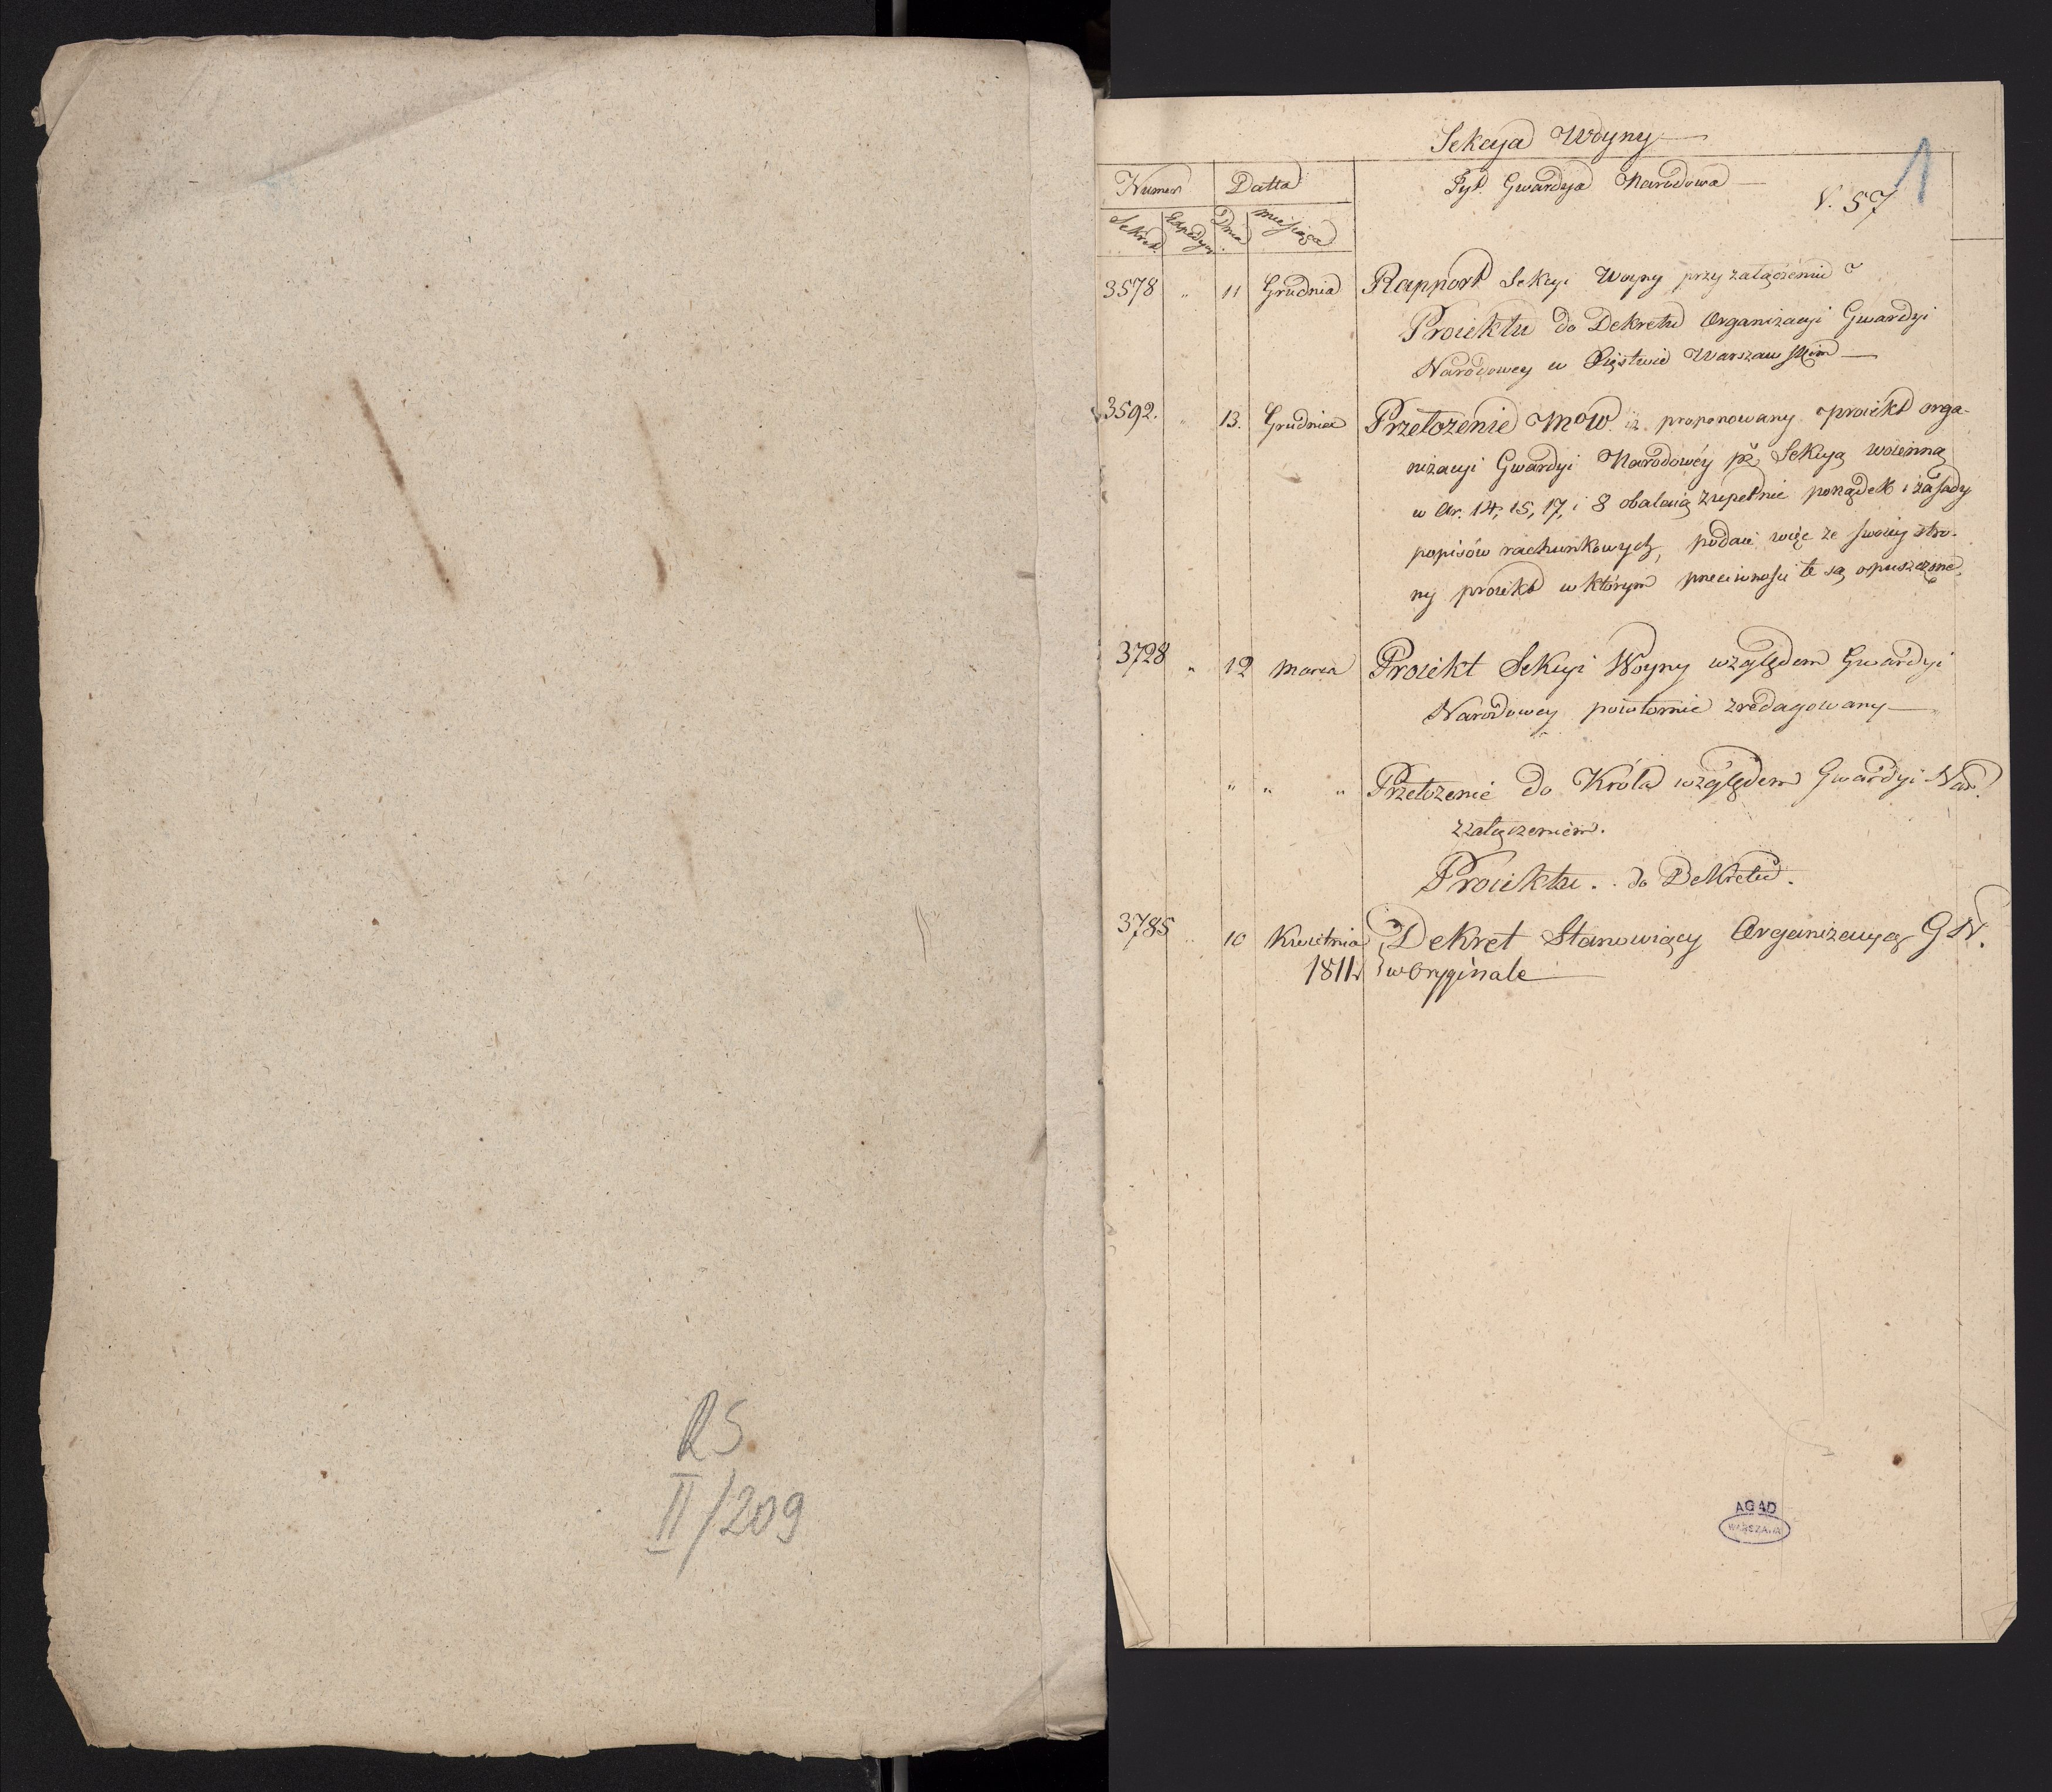 RS
II/209
Sekcya Woyny
1
Numer Datta Tyt. Gwardya Narodowa
V. 57
Sekret. Expedycyi. Dnia miesiąca
3578 " 11 Grudnia Rapport Sekcyi Woyny przy załączeniu
Proiektu do Dekretu Organizacyi Gwardyi
Narodowey w Xięstwie Warszawskim
3592. " 13. Grudnia Przełożenie MoW. iż proponowany proiekt orga-
nizacyi Gwardyi Narodowéy pź Sekcyą woienną
w Ar. 14, 15, 17, i 8 obalaią zupełnie porządek i zasady
popisów rachunkowych, podaie więc ze swoiey stro-
ny proiekt w którym przeciwności te są opuszczone.
3728 " 12 Marca Proiekt Sekcyi Woyny względem Gwardyi
Narodowey powtornie zredagowany
" " " Przełożenie do Króla względem Gwardyi Nar.
z załączeniem.
Proiektu . . do Dekretu.
3785 " 10 Kwietnia Dekret Stanowiący Organizacyą G N.
1811 w Oryginale
AGAD
WARSZAWA